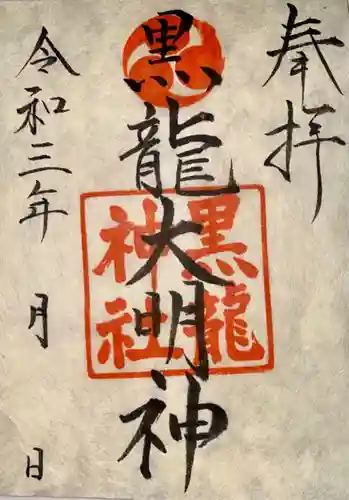 奉拝
黒龍大明神
黒龍
神社
令和三年 月 日